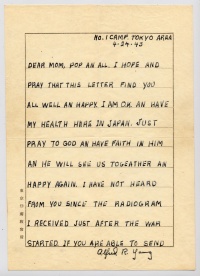 No. 1 CAMP. TOKYO AREA
4-24-43
DEAR MOM, POP AN ALL. I HOPE AND
PRAY THAT THIS LETTER FIND YOU
ALL WELL AN HAPPY. I AM O.K AN HAVE
MY HEALTH HERE IN JAPAN. JUST
PRAY TO GOD AN HAVE FAITH IN HIM
AN HE WILL SEE US TOGEATHER AN
HAPPY AGAIN. I HAVE NOT HEARD
FROM YOU SINCE THE RADIOGRAM
I RECEIVED JUST AFTER THE WAR
STARTED IF YOU ARE ABLE TO SEND
Alfred R. Young